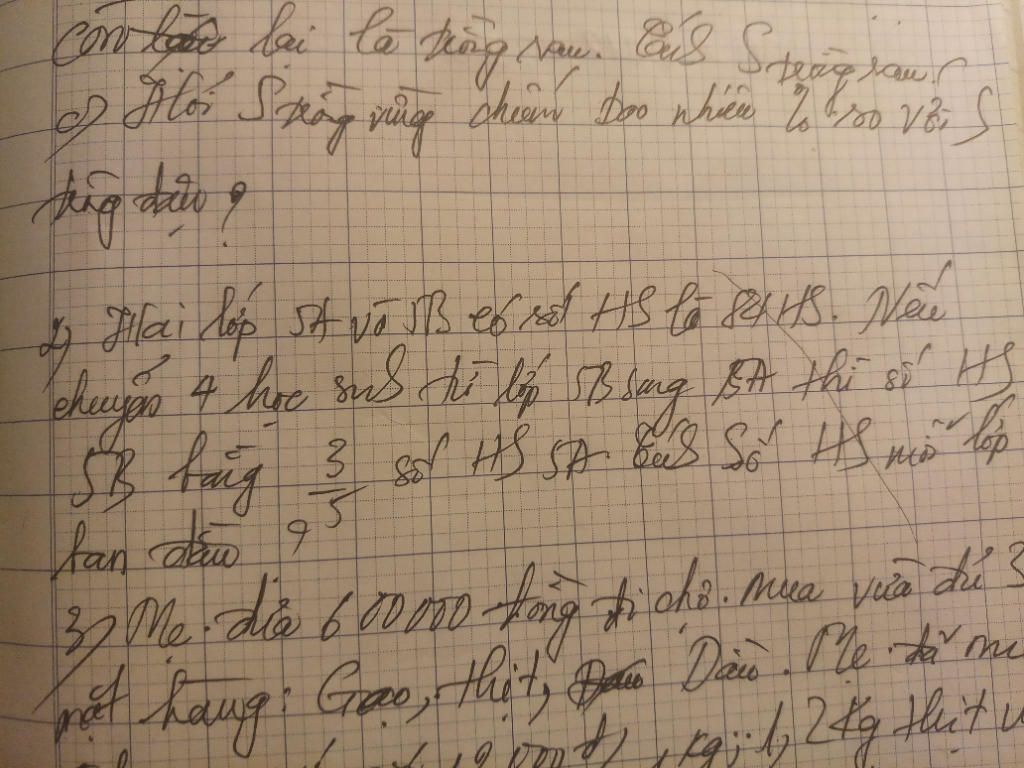 còn lại là trồng rau. Tính S trồng rau?
c) Hỏi S trồng vừng chiếm bao nhiêu % so với S
trồng đậu?
2) Hai lớp 5A và 5B có số HS là 84 HS. Nếu
chuyển 4 học sinh từ lớp 5B sang 5A thì số HS
5B bằng 3/5 số HS 5A. Tính Số HS mỗi lớp
ban đầu?
3) Mẹ đưa 600000 đồng đi chợ mua vừa đủ 3
mặt hàng: Gạo, thịt, Dầu. Mẹ đã
000đ/1kg; 1,2kg thịt